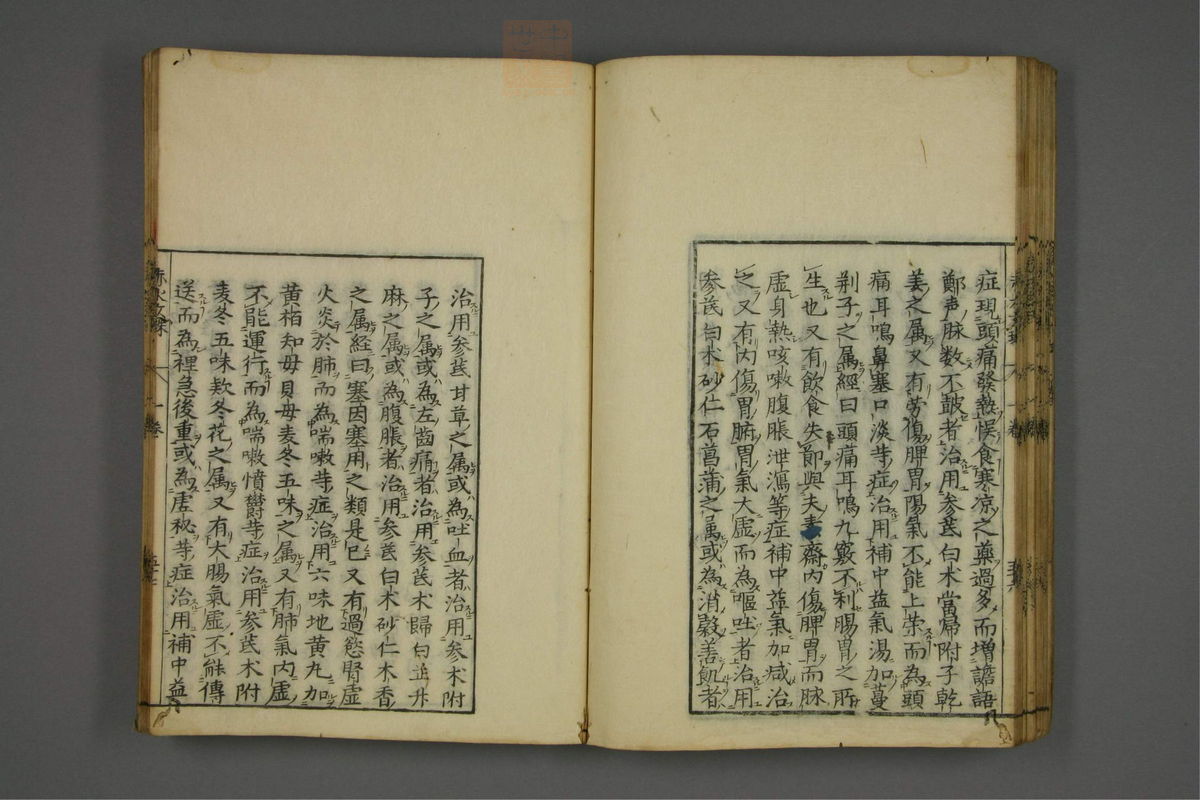 症現頭痛發熱悞食寒凉之藥過多而增譫語
鄭声脉数不皷者治用参芪白术當歸附子乾
姜之属又有労傷脾胃陽氣不能上荣而為頭
痛耳鳴鼻塞口淡等症治用補中益氣湯加蔓
荆子之属經曰頭痛耳鳴九竅不利腸胃之所
生也又有飲食失節與夫素齋内傷脾胃而脉
虚身熱咳嗽腹脹泄瀉等症補中益氣加减治
之又有内傷胃腑胃氣大虚而為嘔吐者治用
参芪白术砂仁石菖蒲之属或為消穀善飢者
治用参芪甘草之属或為吐血者治用参术附
子之属或為左齒痛者治用参芪术歸白芷升
麻之属或為腹脹者治用参芪白术砂仁木香
之属經曰塞因塞用之類是已又有過慾腎虚
火炎於肺而為喘嗽等症治用六味地黄丸加
黄栢知母貝母麦冬五味之属又有肺氣内虚
不能運行而為喘嗽憤欝等症治用参芪术附
麦冬五味欵冬花之属又有大腸氣虚不能傳
送而為裡急後重或為虚秘等症治用補中益